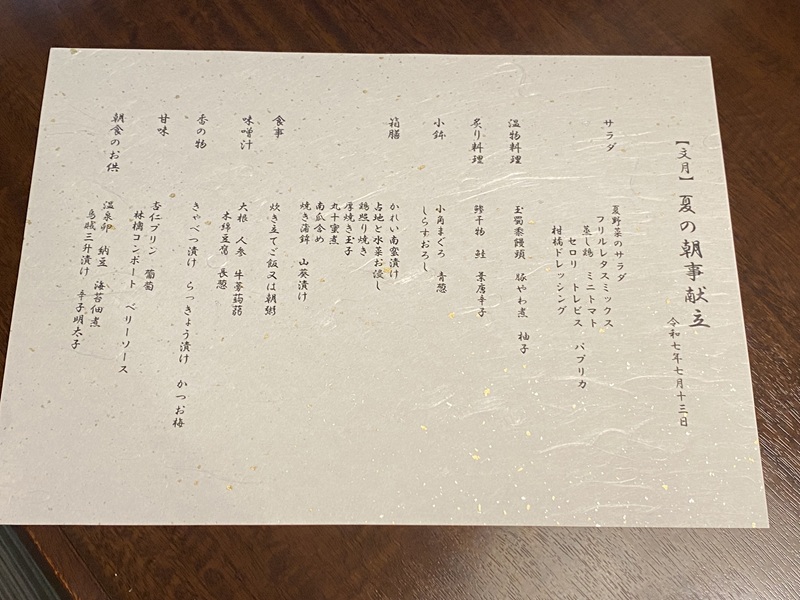 【文月】 夏の朝事献立
令和七年七月十三日
サラダ
夏野菜のサラダ
フリルレタスミックス
蒸し鶏 ミニトマト
セロリ トレビス パプリカ
柑橘ドレッシング
温物料理
玉蜀黍饅頭 豚やわ煮 柚子
炙り料理
鯵干物 鮭 葉唐辛子
小鉢
小角まぐろ 青葱
しらすおろし
箱膳
かれい南蛮漬け
占地と水菜お浸し
鶏照り焼き
厚焼き玉子
丸十蜜煮
南瓜含め
焼き蒲鉾 山葵漬け
食事
炊き立てご飯又は朝粥
味噌汁
大根 人参 牛蒡蒟蒻
木綿豆腐 長葱
香の物
きゃべつ漬け らっきょう漬け かつお梅
甘味
杏仁プリン 葡萄
林檎コンポート ベリーソース
朝食のお供
温泉卵 納豆 海苔佃煮
烏賊三升漬け 辛子明太子